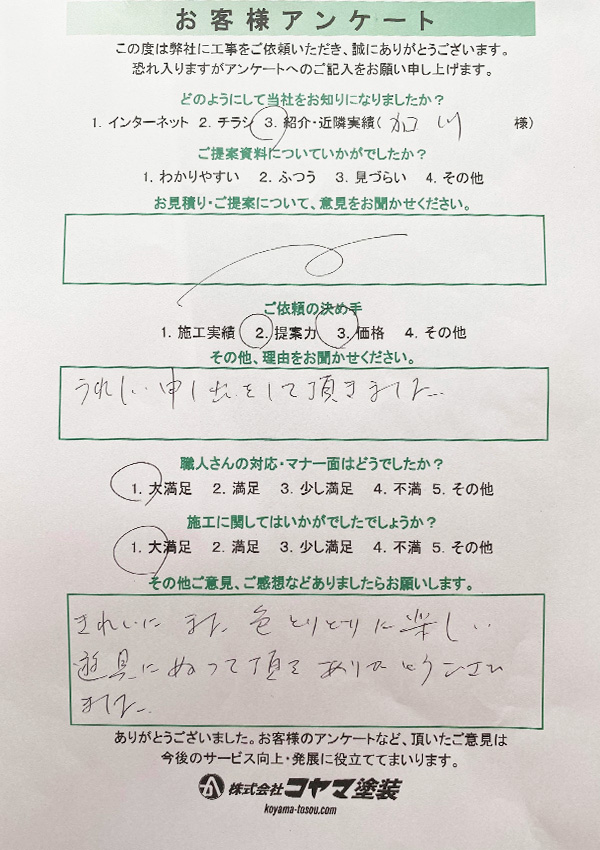 お客様アンケート
この度は弊社に工事をご依頼いただき、誠にありがとうございます。
恐れ入りますがアンケートへのご記入をお願い申し上げます。
どのようにして当社をお知りになりましたか？
1. インターネット 2. チラシ 3. 紹介・近隣実績( 加川 様)
ご提案資料についていかがでしたか？
1. わかりやすい 2. ふつう 3. 見づらい 4. その他
お見積り・ご提案について、意見をお聞かせください。
ご依頼の決め手
1. 施工実績 2. 提案力 3. 価格 4. その他
その他、理由をお聞かせください。
うれしい申し出をして頂きました。
職人さんの対応・マナー面はどうでしたか？
1. 大満足 2. 満足 3. 少し満足 4. 不満 5. その他
施工に関してはいかがでしたでしょうか？
1. 大満足 2. 満足 3. 少し満足 4. 不満 5. その他
その他ご意見、ご感想などありましたらお願いします。
きれいに また 色とりどりに楽しい
遊具にぬって頂き ありがとうござい
ました。
ありがとうございました。お客様のアンケートなど、頂いたご意見は
今後のサービス向上・発展に役立ててまいります。
株式会社コヤマ塗装
koyama-tosou.com